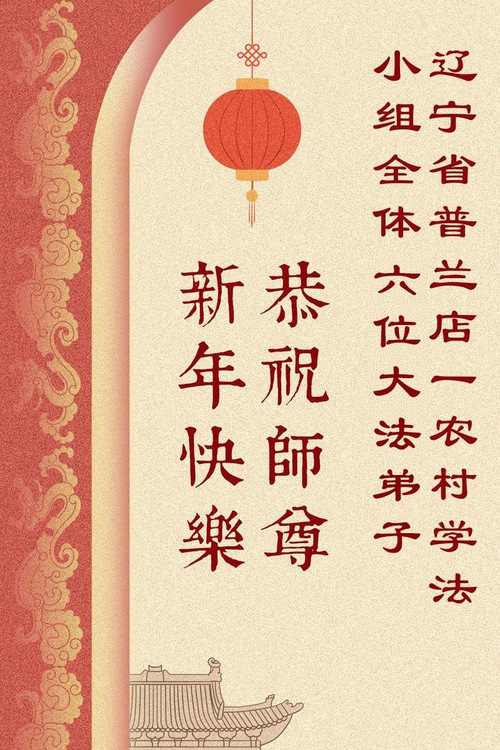 辽宁省普兰店一农村学法
小组全体六位大法弟子
恭祝師尊
新年快樂